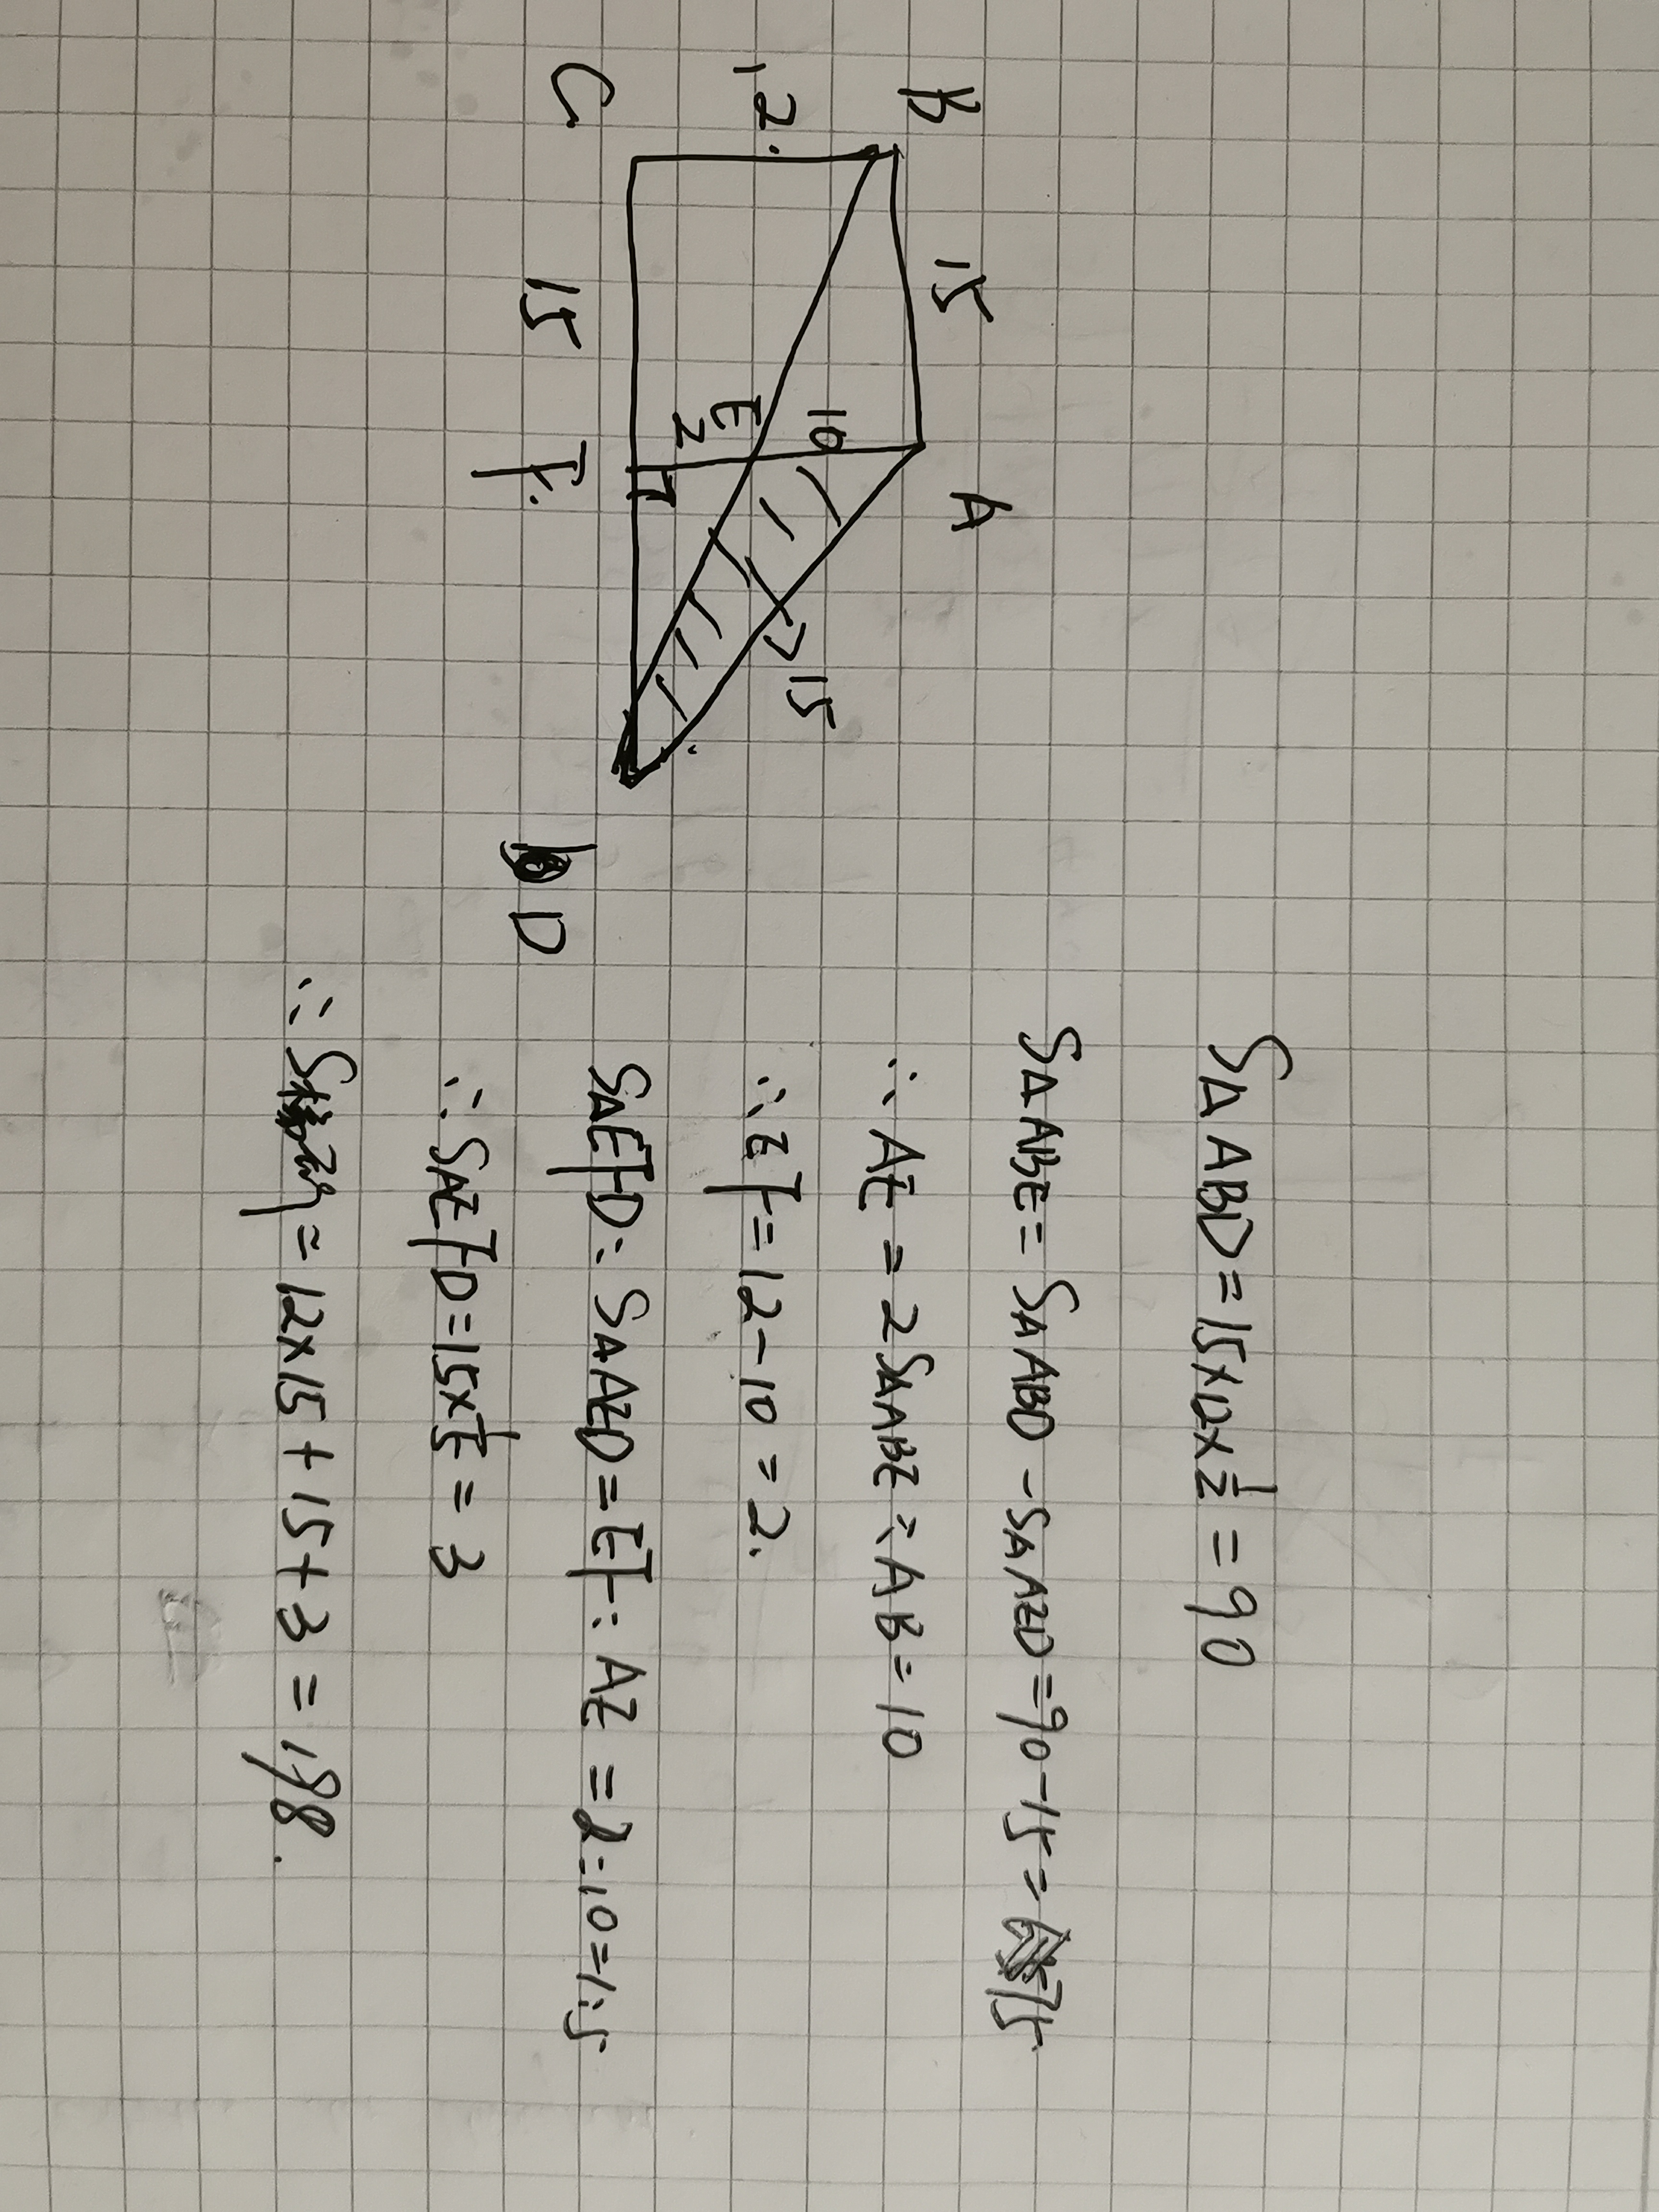 B
15
A
12
10
E
2
15
C
15
F
D
S△ABD=15×12×1/2=90
S△ABE=S△ABD-S△AED=90-15=75
∴AE=2S△ABE÷AB=10
∴EF=12-10=2.
S△EFD:S△AED=EF:AE=2:10=1:5
∴S△EFD=15×1/5=3
∴S梯形=12×15+15+3=198.